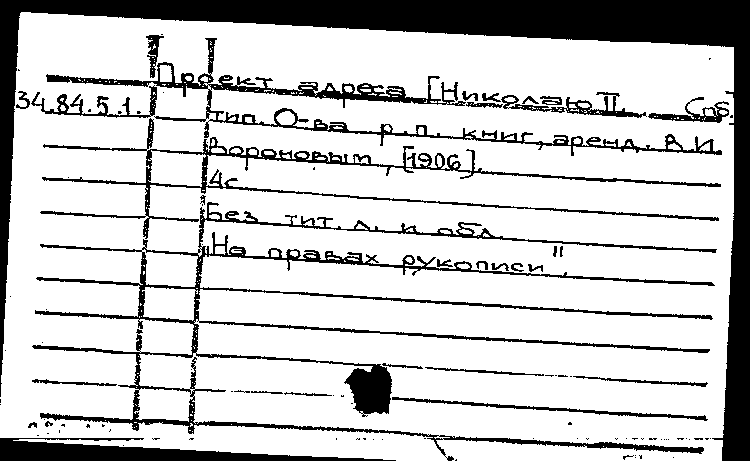 Проект адреса [Николаю II. Спб.]
34.84.5.1. тип. О-ва р.п. книг, аренд. В.И.
Вороновым, [1906].
4с.
Без тит. л. и обл.
"На правах рукописи".